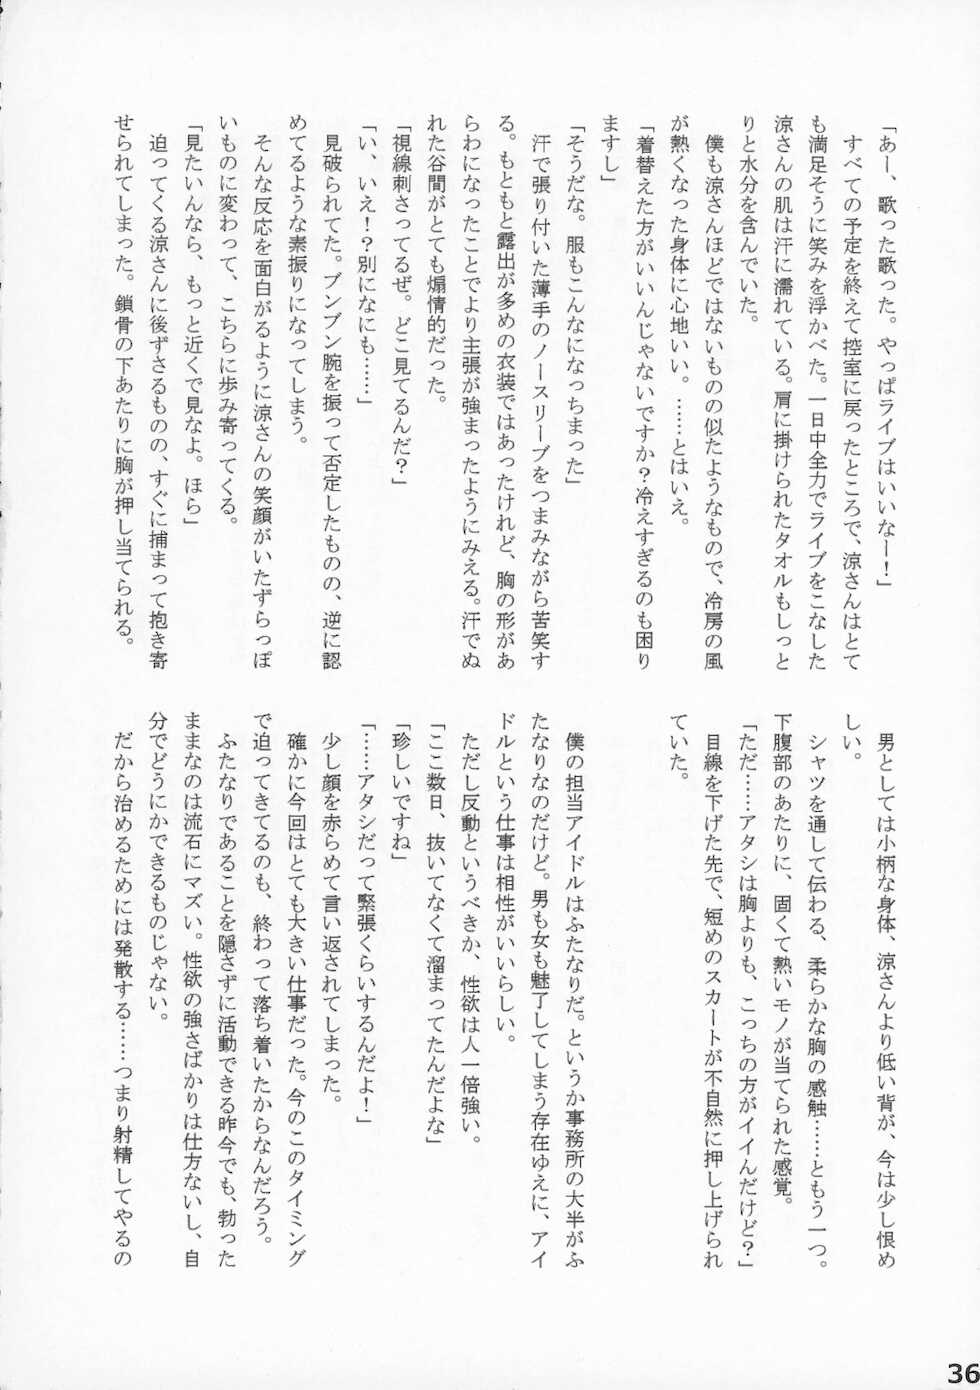 「あー、歌った歌った。やっぱライブはいいなー！」
すべての予定を終えて控室に戻ったところで、涼さんはとて
も満足そうに笑みを浮かべた。一日中全力でライブをこなした
涼さんの肌は汗に濡れている。肩に掛けられたタオルもしっと
りと水分を含んでいた。
僕も涼さんほどではないものの似たようなもので、冷房の風
が熱くなった身体に心地いい。……とはいえ。
「着替えた方がいいんじゃないですか？冷えすぎるのも困り
ますし」
「そうだな。服もこんなになっちまった」
汗で張り付いた薄手のノースリーブをつまみながら苦笑す
る。もともと露出が多めの衣装ではあったけれど、胸の形があ
らわになったことでより主張が強まったようにみえる。汗でぬ
れた谷間がとても煽情的だった。
「視線刺さってるぜ。どこ見てるんだ？」
「い、いえ！？別になにも……」
見破られてた。ブンブン腕を振って否定したものの、逆に認
めてるような素振りになってしまう。
そんな反応を面白がるように涼さんの笑顔がいたずらっぽ
いものに変わって、こちらに歩み寄ってくる。
「見たいんなら、もっと近くで見なよ。ほら」
迫ってくる涼さんに後ずさるものの、すぐに捕まって抱き寄
せられてしまった。鎖骨の下あたりに胸が押し当てられる。
男としては小柄な身体、涼さんより低い背が、今は少し恨め
しい。
シャツを通して伝わる、柔らかな胸の感触……ともう一つ。
下腹部のあたりに、固くて熱いモノが当てられた感覚。
「ただ……アタシは胸よりも、こっちの方がイイんだけど？」
目線を下げた先で、短めのスカートが不自然に押し上げられ
ていた。
僕の担当アイドルはふたなりだ。というか事務所の大半がふ
たなりなのだけど。男も女も魅了してしまう存在ゆえに、アイ
ドルという仕事は相性がいいらしい。
ただし反動というべきか、性欲は人一倍強い。
「ここ数日、抜いてなくて溜まってたんだよな」
「珍しいですね」
「……アタシだって緊張くらいするんだよ！」
少し顔を赤らめて言い返されてしまった。
確かに今回はとても大きい仕事だった。今のこのタイミング
で迫ってきてるのも、終わって落ち着いたからなんだろう。
ふたなりであることを隠さずに活動できる昨今でも、勃った
ままなのは流石にマズい。性欲の強さばかりは仕方ないし、自
分でどうにかできるものじゃない。
だから治めるためには発散する……つまり射精してやるの
36